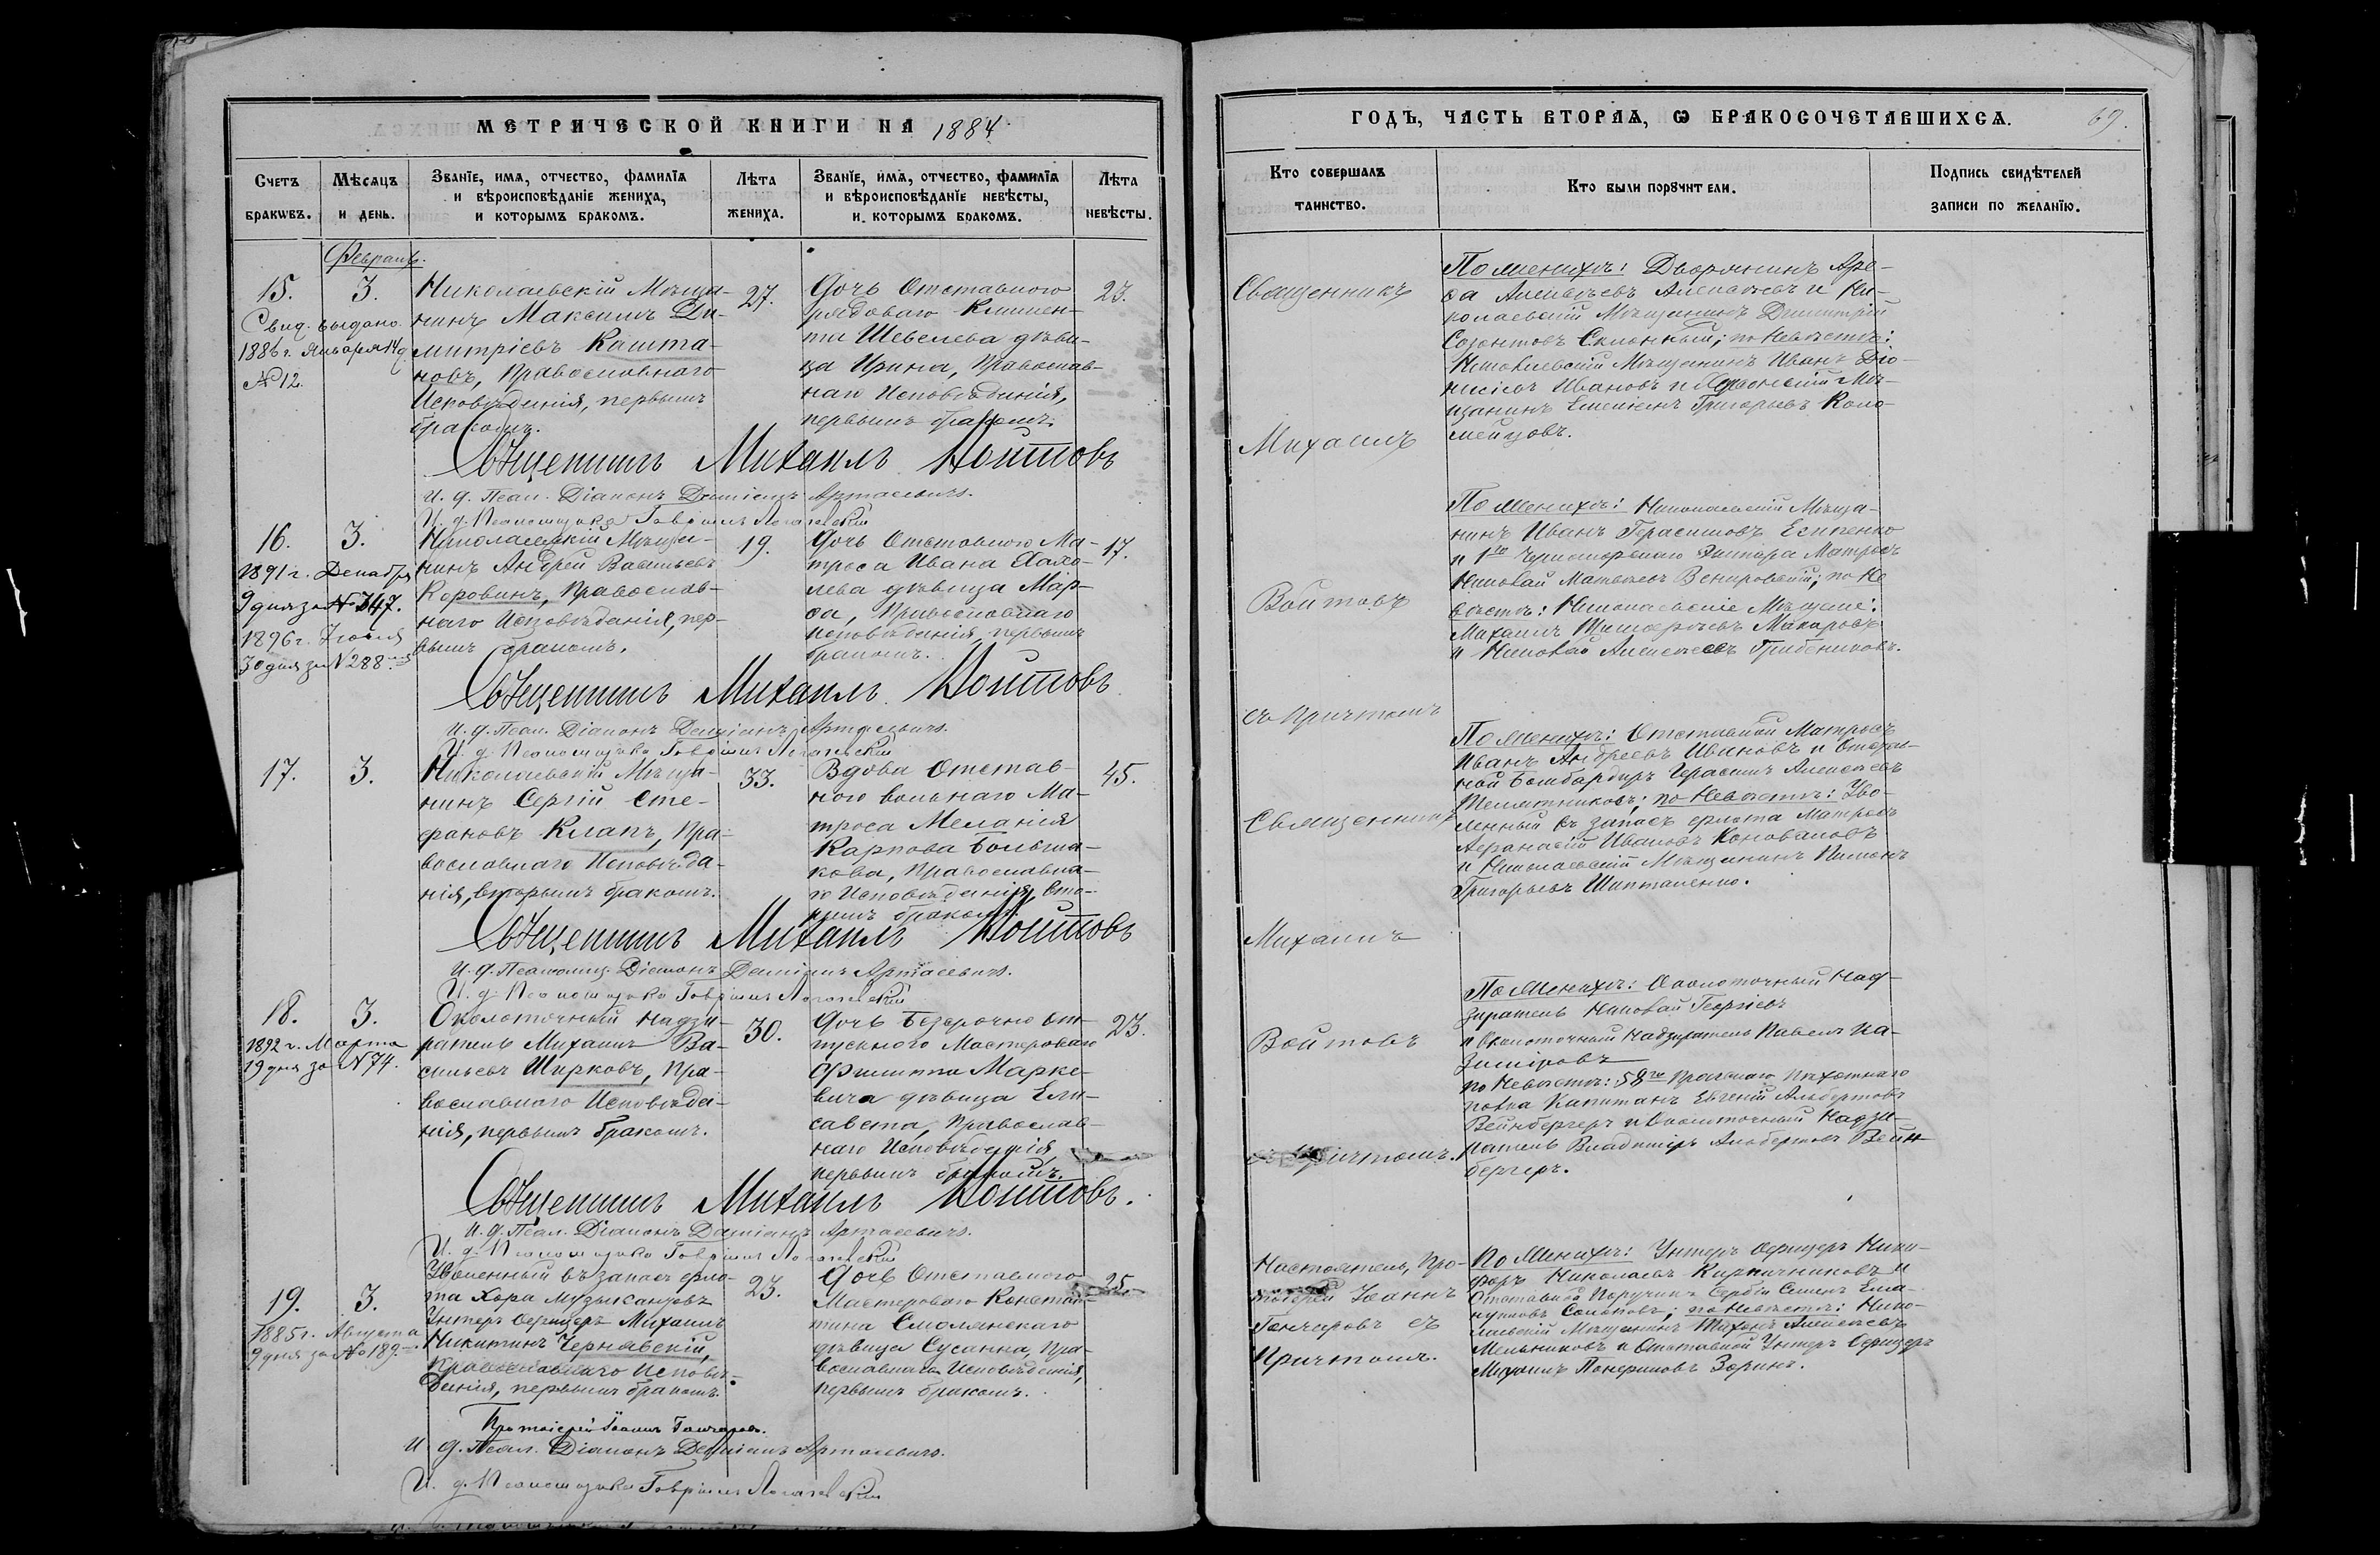 МЕТРИЧЕСКОЙ КНИГИ НА 1884
Счетъ браковъ.
Мѣсяцъ и день.
Званїе, имя, отчество, фамилїя
и вѣроисповѣданїе жениха,
и которымъ бракомъ.
Лѣта жениха.
Званїе, имя, отчество, фамилїя
и вѣроисповѣданїе невѣсты,
и которымъ бракомъ.
Лѣта невѣсты.
Февраль.
15.
Свид. выдано
1886 г. Января 14 д.
№ 12.
3.
Николаевскій Мѣща-
нинъ Максимъ Ди-
митріевъ Кашта-
новъ, Православнаго
Исповѣданія, первымъ
бракомъ.
27.
Дочь Отставного
рядоваго Климен-
та Шевелева дѣви-
ца Ирина, Православ-
наго Исповѣданія,
первымъ бракомъ.
23.
Священникъ Михаилъ Войтовъ
И. д. Псал. Діаконъ Даміанъ Артасевичъ.
И. д. Псаломщика Гавріилъ
16.
1891 г. Декабря
9 дня за № 347.
1896 г. Іюля
30 дня за № 288
3.
Николаевскій Мѣща-
нинъ Андрей Васильевъ
Коровинъ, Православ-
наго Исповѣданія, пер-
вымъ бракомъ.
19.
Дочь Отставного Ма-
троса Ивана
лева дѣвица Мар-
ѳа, Православнаго
исповѣданія, первымъ
бракомъ.
17.
Священникъ Михаилъ Войтовъ
И. д. Псал. Діаконъ Даміанъ Артасевичъ.
И. д. Псаломщика Гавріилъ
17.
3.
Николаевскій Мѣща-
нинъ Сергій Сте-
фановъ Клапъ, Пра-
вославнаго Исповѣда-
нія, вторымъ бракомъ.
33.
Вдова Отстав-
ного вольнаго Ма-
троса Меланія
Карпова Больша-
кова, Православна-
го Исповѣданія, Вто-
рымъ бракомъ.
45.
Священникъ Михаилъ Войтовъ
И. д. Псаломщ. Діаконъ Даміанъ Артасевичъ.
И. д. Псаломщика Гавріилъ
18.
1892 г. Марта
19 дня за № 74.
3.
Околоточный Надзи-
ратель Михаилъ Ва-
сильевъ Ширковъ, Пра-
вославнаго Исповѣда-
нія, первымъ бракомъ.
30.
Дочь Безсрочно От-
пускного Мастероваго
Филиппа Марке-
вича дѣвица Ели-
савета, Православ-
наго Исповѣданія,
первымъ бракомъ.
23.
Священникъ Михаилъ Войтовъ.
И. д. Псал. Діаконъ Даміанъ Артасевичъ.
И. д. Псаломщика Гавріилъ
19.
1885 г. Августа
9 дня за № 189.
3.
Уволенный въ запасъ фло-
та Хора Музыкантовъ
Унтеръ Офицеръ Михаилъ
Никитинъ Чернявскій,
Православнаго Исповѣ-
данія, первымъ бракомъ.
23.
Дочь Отставного
Мастероваго Констан-
тина Смолянскаго
дѣвица Сусанна, Пра-
вославнаго Исповѣданія,
первымъ бракомъ.
25.
Протоіерей Іоаннъ Гончаровъ.
И. д. Псал. Діаконъ Даміанъ Артасевичъ.
И. д. Псаломщика Гавріилъ
ГОДЪ, ЧАСТЬ ВТОРАЯ, Ѡ БРАКОСОЧЕТАВШИХСЯ.
69.
Кто совершалъ таинство.
Кто были порꙋчители.
Подпись свидѣтелей
записи по желанїю.
Священникъ
Михаилъ
Войтовъ
съ причтомъ
Священникъ
Михаилъ
Войтовъ
съ причтомъ.
Настоятель, Про-
тоіерей Іоаннъ
Гончаровъ съ
Причтомъ.
По Женихѣ: Дворянинъ Аре-
ѳа Алексѣевъ Алексѣевъ и Ни-
колаевскій Мѣщанинъ Димитрій
Созонтовъ ; по Невѣстѣ:
Николаевскій Мѣщанинъ Иванъ Діо-
нисіевъ Ивановъ и Мѣ-
щанинъ Григорьевъ Коло-
мейцовъ.
По Женихѣ: Николаевскій Мѣща-
нинъ Иванъ Герасимовъ Есипенко
и 1го Черноморскаго Экипажа Матросъ
Николай Матвѣевъ ; по Не
вѣстѣ: Николаевскіе Мѣщане:
Михаилъ Макаровъ
и Николай Алексѣевъ Грибениковъ.
По Женихѣ: Отставной Матросъ
Иванъ Андреевъ Ивановъ и Отстав-
ной Бомбардиръ Герасимъ Алексѣевъ
; по Невѣстѣ: Уво-
ленный въ запасъ флота Матросъ
Аѳанасій Ивановъ Коноваловъ
и Николаевскій Мѣщанинъ
Григорьевъ Шапталенко.
По Женихѣ: Околоточный Над-
зиратель Николай Георгіевъ
и Околоточный Надзиратель Павелъ Ка-
зиміровъ
по Невѣстѣ: 58го Прагскаго Пѣхотнаго
полка Капитанъ Евгеній Альбертовъ
Вейнбергеръ и Околоточный Надзи-
ратель Владиміръ Альбертовъ Вейн-
бергеръ.
По Женихѣ: Унтеръ Офицеръ Ники-
форъ Николаевъ Кирпичниковъ и
Отставной Поручикъ Семенъ
Соколовъ; по Невѣстѣ: Нико-
лаевскій Мѣщанинъ Тихонъ Алексѣевъ
Мельниковъ и Отставной Унтеръ Офицеръ
Михаилъ Зоринъ.